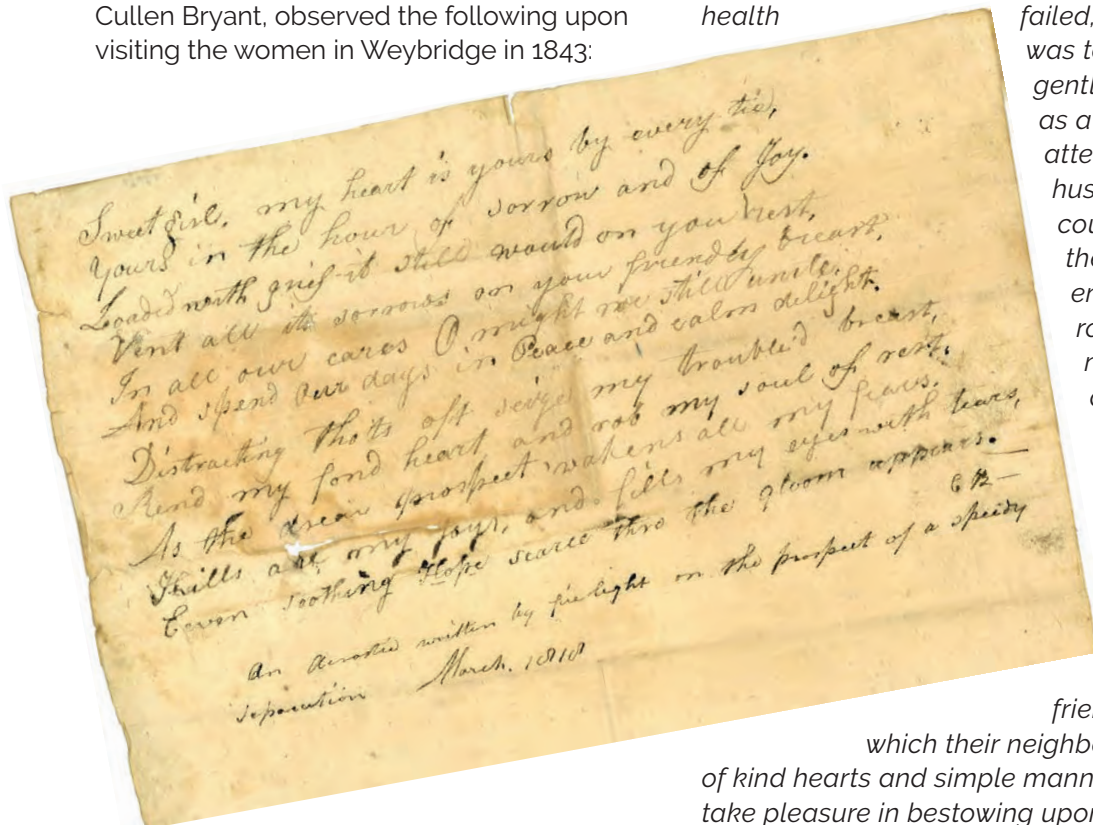 Cullen Bryant, observed the following upon
visiting the women in Weybridge in 1843:
Sweet girl, my heart is yours by every tie,
Yours in the hour of sorrow and of Joy.
Loaded with grief it still would on you rest,
Vent all its sorrows on your friendly breast,
In all our cares O might we still unite.
And spend our days in Peace and calm delight.
Distracting tho'ts oft seize my troubled breast,
Rend my fond heart and rob my soul of rest.
As the drear prospect wakens all my fears.
Kills all my joys, and fills my eyes with tears,
Even soothing Hope scarce thro the gloom appears. —
CB —
An Acrostic written by firelight on the prospect of a speedy
separation March.
health
failed,
was
gentl
as a
atte
hus
cou
friel
which their neighb
of kind hearts and simple mann
take pleasure in bestowing upor